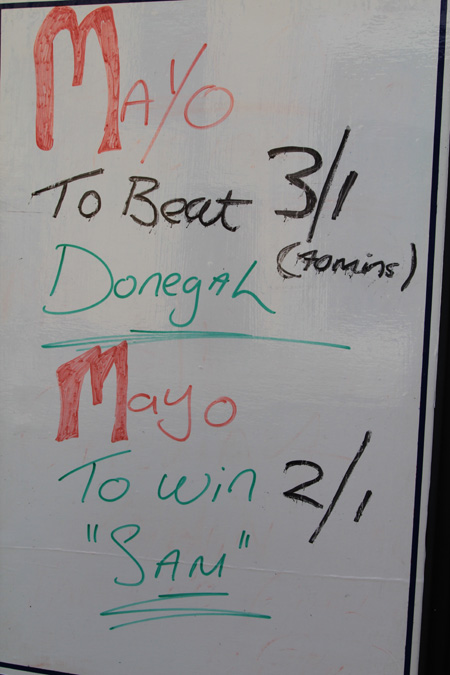 Mayo
To Beat 3/1
Donegal (70mins)
Mayo
To win 2/1
"SAM"